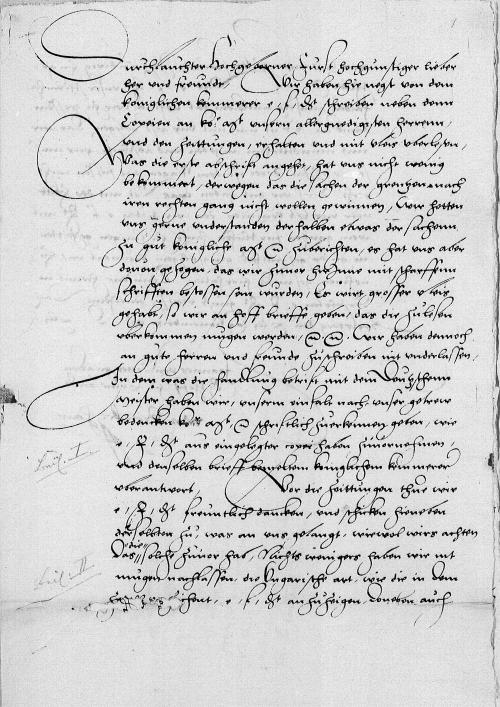 Durchlauchter Hochgeborner Furst hochgunstiger lieber
her und freundt, Wir haben hie negst von dem
koniglichen kemmerer e. f. dt. schreiben neben denn
Copeien an ko. mt. unsern allergnedigsten herrenn,
und den zeittungen, erhalten und mit vleis uberlesen,
Was die erste abschrifft angehet, hat uns nicht wenig
bekummert, derwegen das die sachen der grentzen nach
iren rechten gang nicht wollen gewinnen, Wir hetten
uns gerne understanden derhalben etwas der sachenn
zu gut konigliche mt. zuberichten, es hat uns aber
davon gezogen, das wir zuvor hirinne mit scharffenn
schrifften bestossen sein wurden, Es wirt grosser vleis
gehabt, so wir an hoff brieffe geben, das die zulesen
uberkommen mugen werden, Wir haben dennoch
an gute herren und freunde zuschreiben nit underlassen,
In dem was die handlung betrifft mit dem Deutzschenn
meister haben wir, unserm einfalt nach, unser getrew
bedencken ko. mt. schrifftlich zuerkennen geben, wie
e. f. dt. aus eingelegter copei haben zuvornehmen,
und denselben brieff bemeltem koniglichen kemmerer
uberantwort, Vor die zeittungen thue wir
e. f. dt. freuntlich dancken, und schicken hieneben
derselbten zu, was an uns gelangt, wiewol wirs achten
das die solche zuvor hab, Nichts wenigers haben wir nit
mugen nachlassen, die Ungarische art, wie die in dem
e. f. dt. anzuzeigen, doneben auch